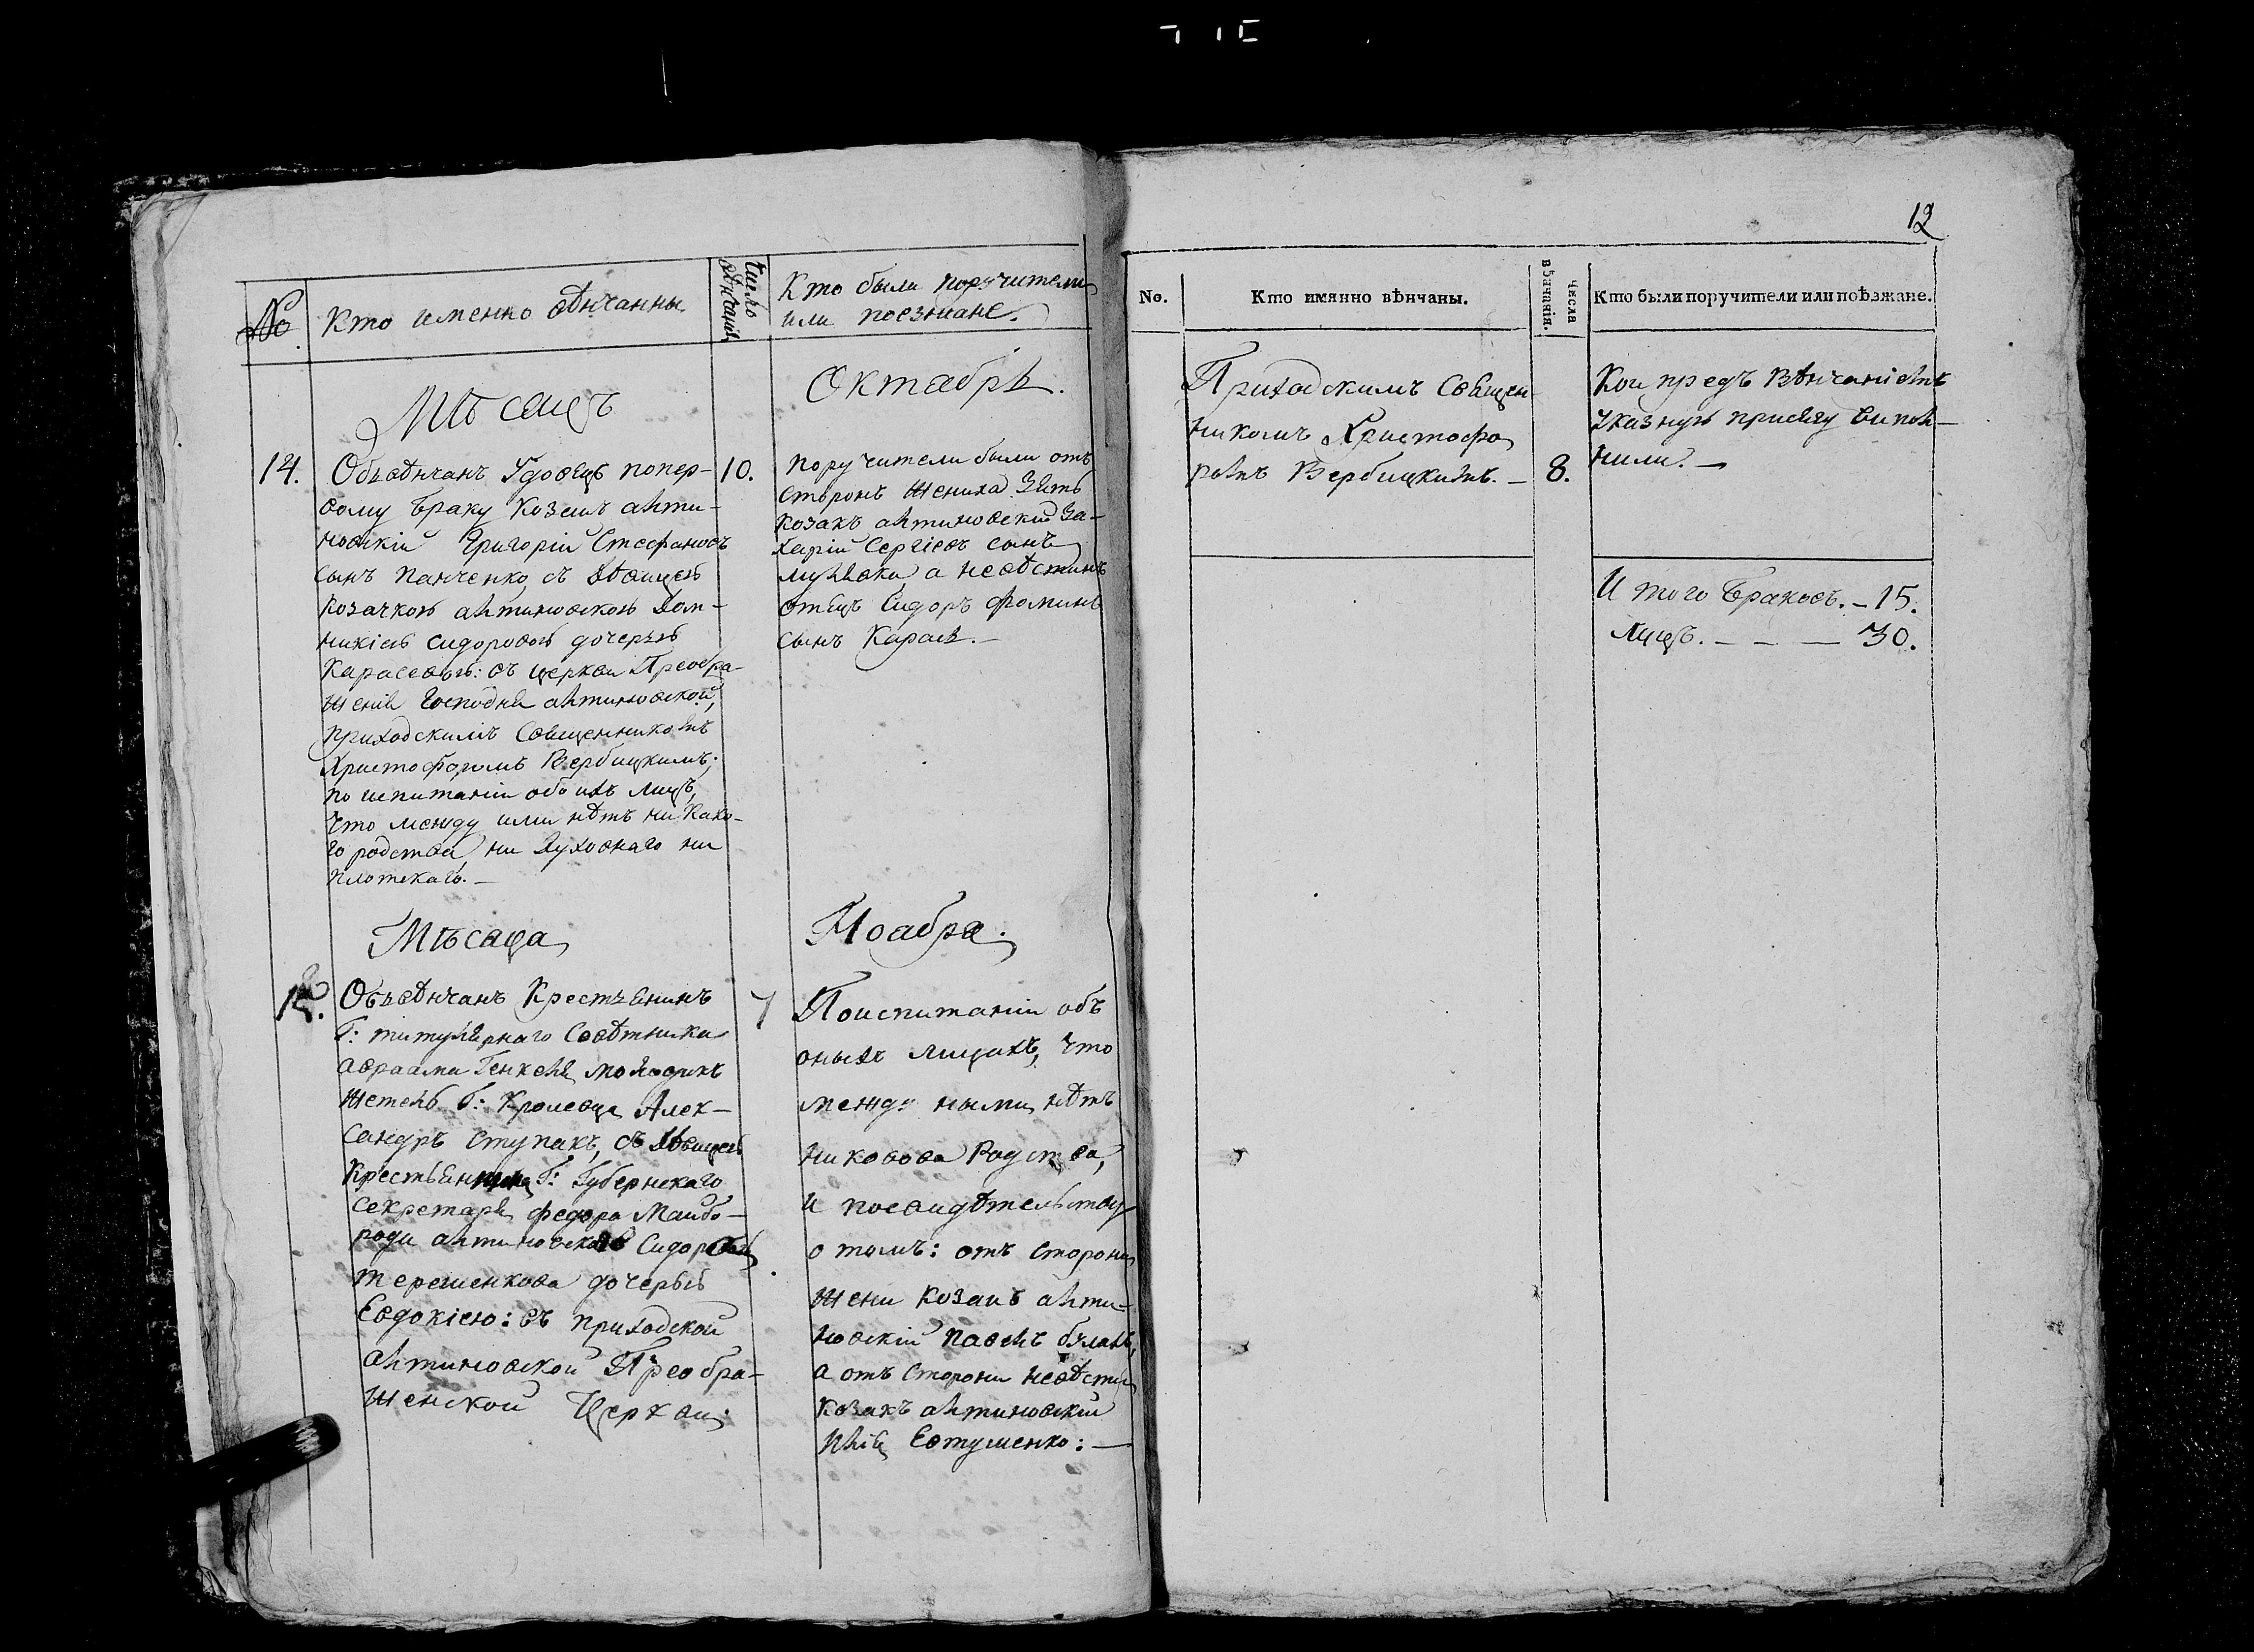 №
Кто именно вѣнчанны
Число вѣнчанія
Кто были поручители
или поезжане.
Мѣсяцъ
Октябрь.
14.
Обвѣнчанъ Удовецъ попер-
вому браку козакъ алти-
новскій Григорій Стефановъ
сынъ Панченко, съ Дѣвицею
козачкою алтиновскою Дом-
никіею Сидоровою дочерью
Карасевою: въ церкви Преобра-
женія Господня алтиновской,
приходскимъ Священникомъ
Христофоромъ Вербицкимъ;
по испитаніи обоихъ лицъ,
что между ими нѣтъ ни како-
го родства, ни духовнаго ни
плотскаго. —
10.
поручители были отъ
сторонъ жениха зять
козакъ алтиновскій За-
харій Сергіевъ сынъ
а невѣстинъ
отецъ Сидоръ Фоминъ
сынъ Карась. —
Мѣсяца
Ноября.
15.
Обвѣнчанъ Крестьянинъ
Г: титулярнаго Совѣтника
авраама Генкеля
жетель Г: Кролевца Алек-
сандръ Ступакъ, съ Дѣвицею
Г: Губернскаго
Секретаря федора Маибо-
роди алтиновской
терешенкова дочерью
Евдокіею: въ приходской
алтиновской Преобра-
женской Церкви;
7
Поиспитаніи объ
оныхъ лицахъ, что
между ными нѣтъ
никовова Родства,
и посвидѣтельству
о томъ: отъ сторони
жени козакъ алти-
новскій павелъ
а отъ сторони невѣсти
козакъ алтиновскій
Илія Евтушенко: —
12
№.
Кто имянно вѣнчаны.
Числа вѣнчанія.
Кто были поручители или поѣзжане.
Приходскимъ Священ-
никомъ Христофо
ромъ Вербицкимъ. —
8.
Кои предъ Вѣнчаніемъ
указную присягу випол-
нили. —
И того Браковъ. - 15.
Лицъ. — — — 30.